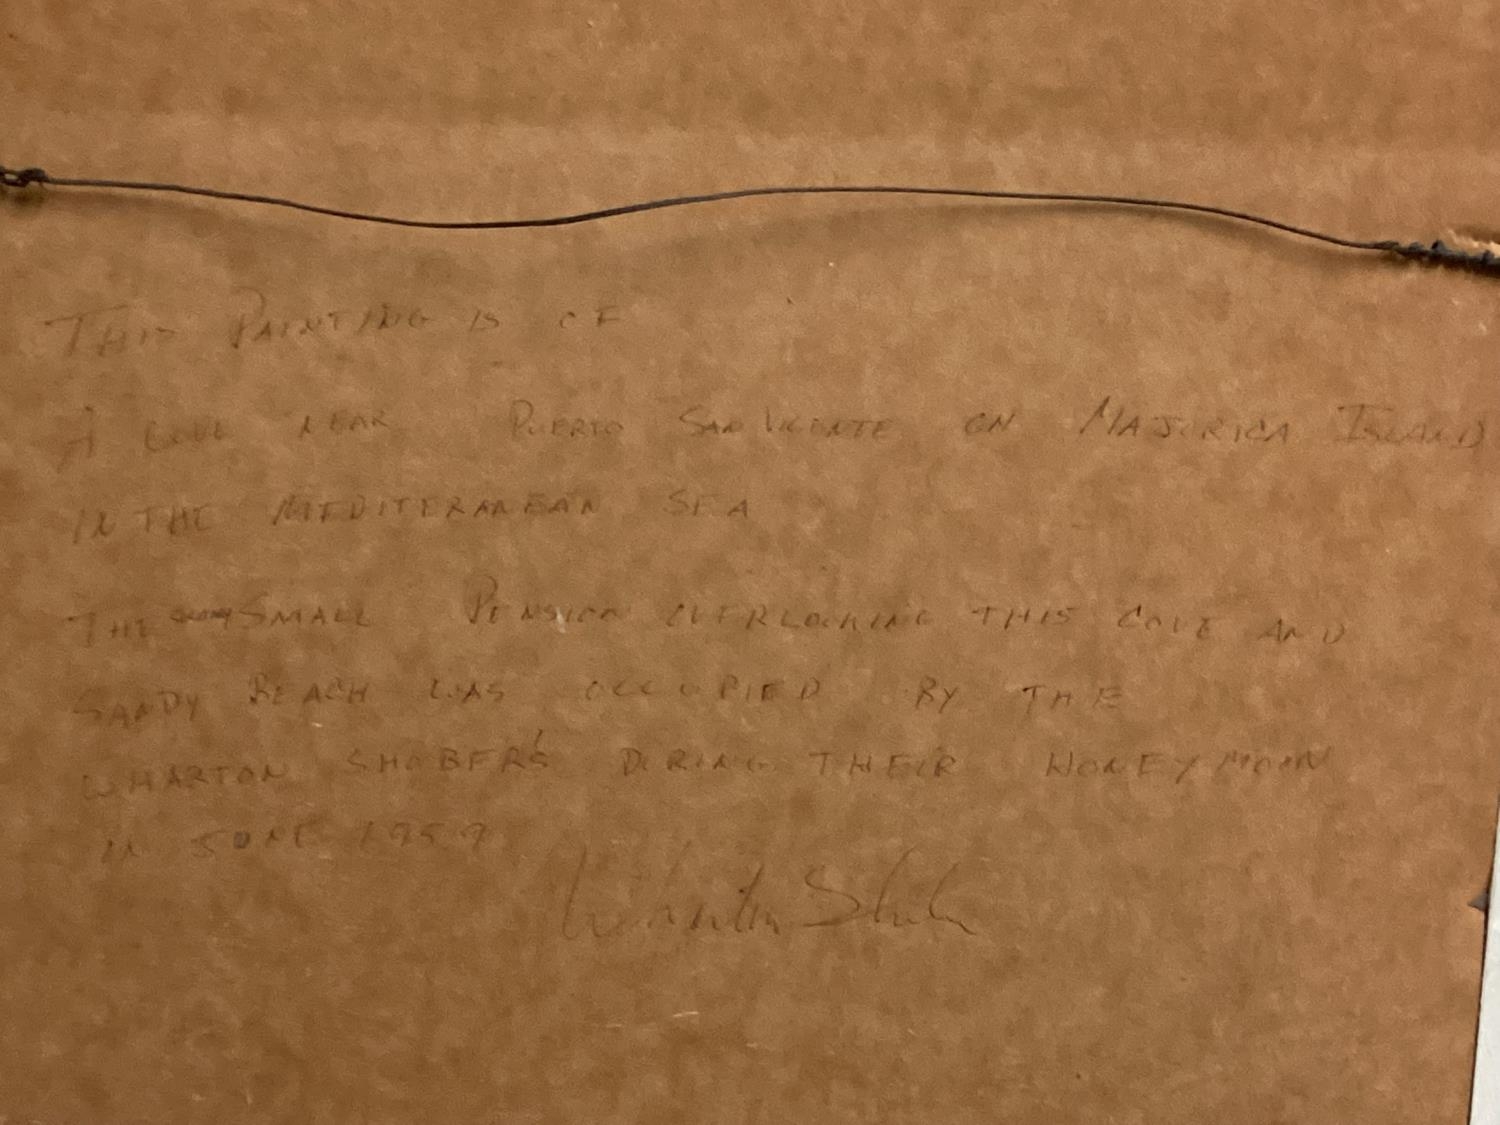 THIS PAINTING IS OF
A COVE NEAR PUERTO SAN VICENTE ON MAJORICA ISLAND
IN THE MEDITERANEAN SEA
THE SMALL PENSION OVERLOOKING THIS COVE AND
SANDY BEACH WAS OCCUPIED BY THE
WHARTON SHOBER'S DURING THEIR HONEYMOON
IN JUNE 1959
Wharton Shober